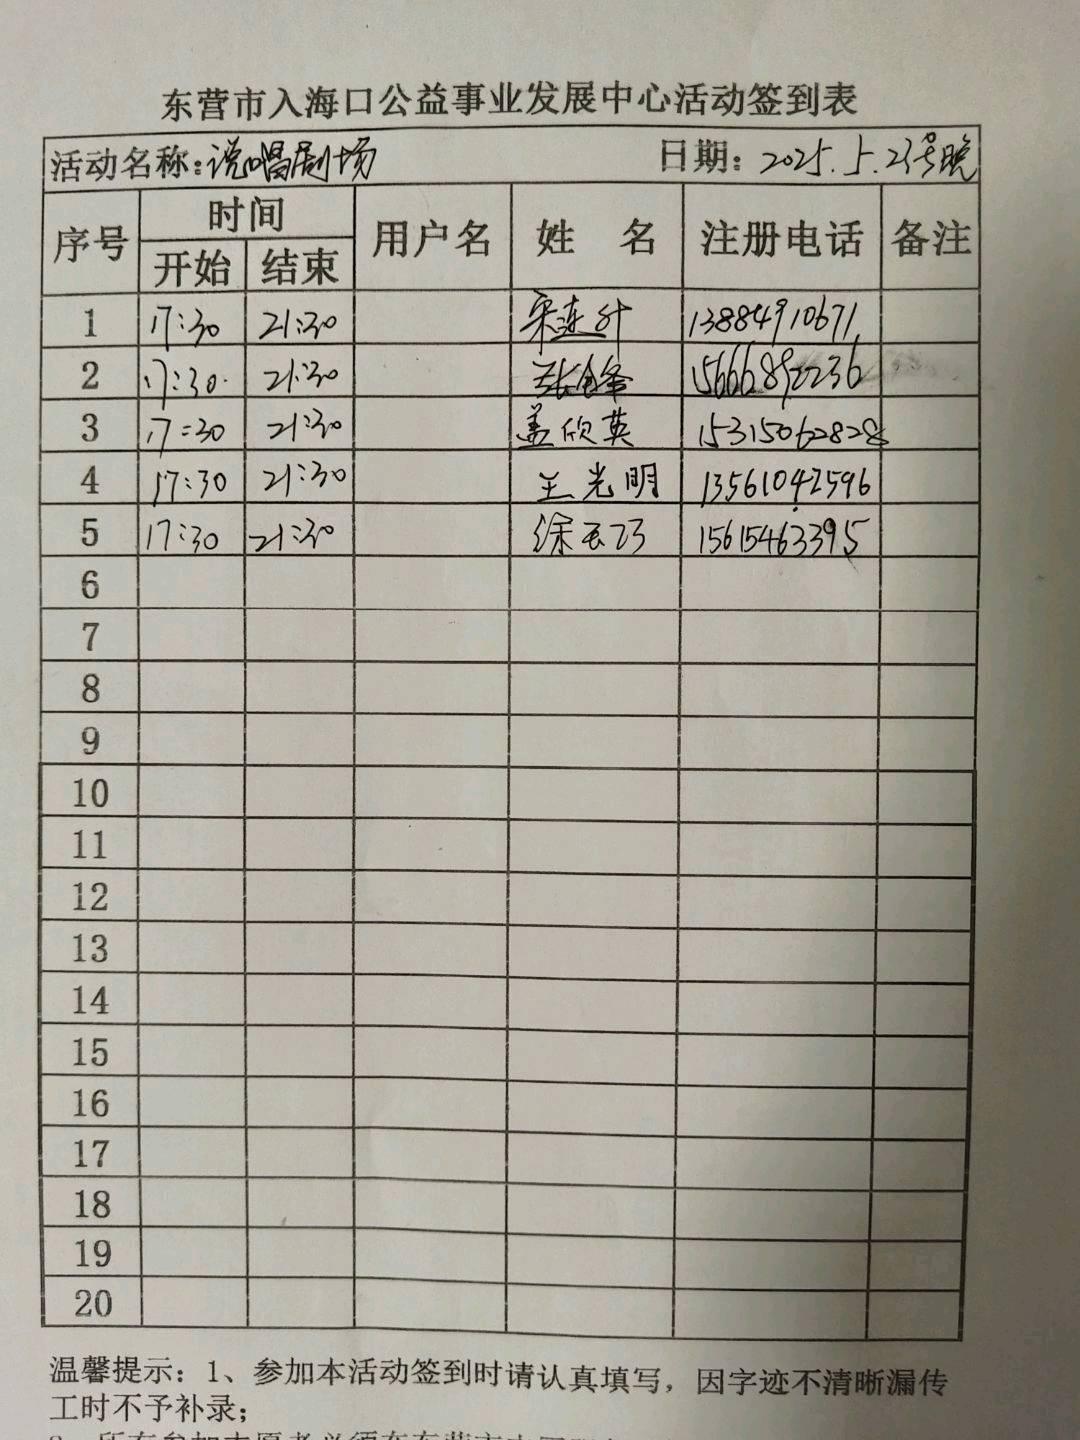 东营市入海口公益事业发展中心活动签到表
活动名称:说唱剧场 日期: 2025.5.23号晚
序号 时间 用户名 姓 名 注册电话 备注
开始 结束
1 17:30 21:30 宋连升 13884910671
2 17:30 21:30 张 15666892236
3 17:30 21:30 盖欣英 15315062828
4 17:30 21:30 王光明 13561042596
5 17:30 21:30 徐玉巧 15615463395
6
7
8
9
10
11
12
13
14
15
16
17
18
19
20
温馨提示: 1、参加本活动签到时请认真填写，因字迹不清晰漏传
工时不予补录;